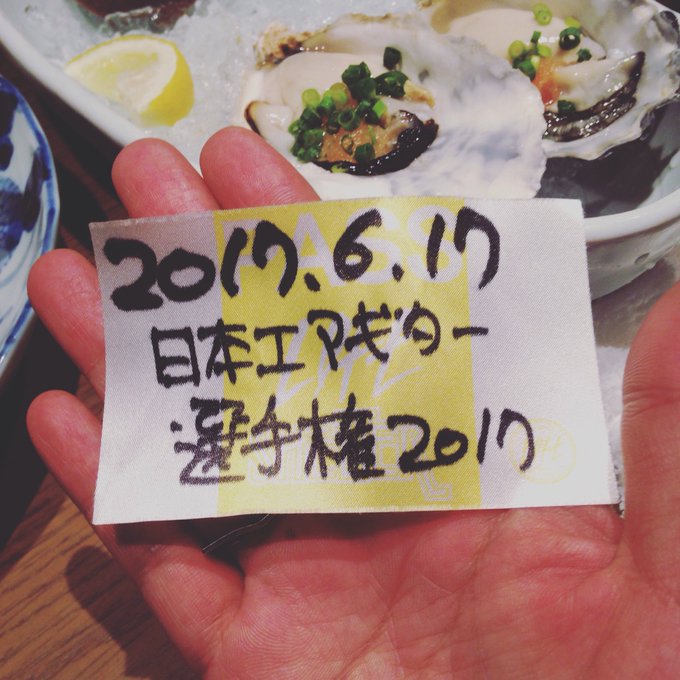 2017.6.17
日本エアギター
選手権2017
PASS